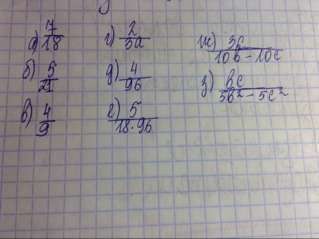 а) 7/18 г) 2/5a ж) 3c/(10b - 10c)
б) 5/21 д) 4/9b з) bc/(5b² - 5c²)
в) 4/9 е) 5/(18·9b)